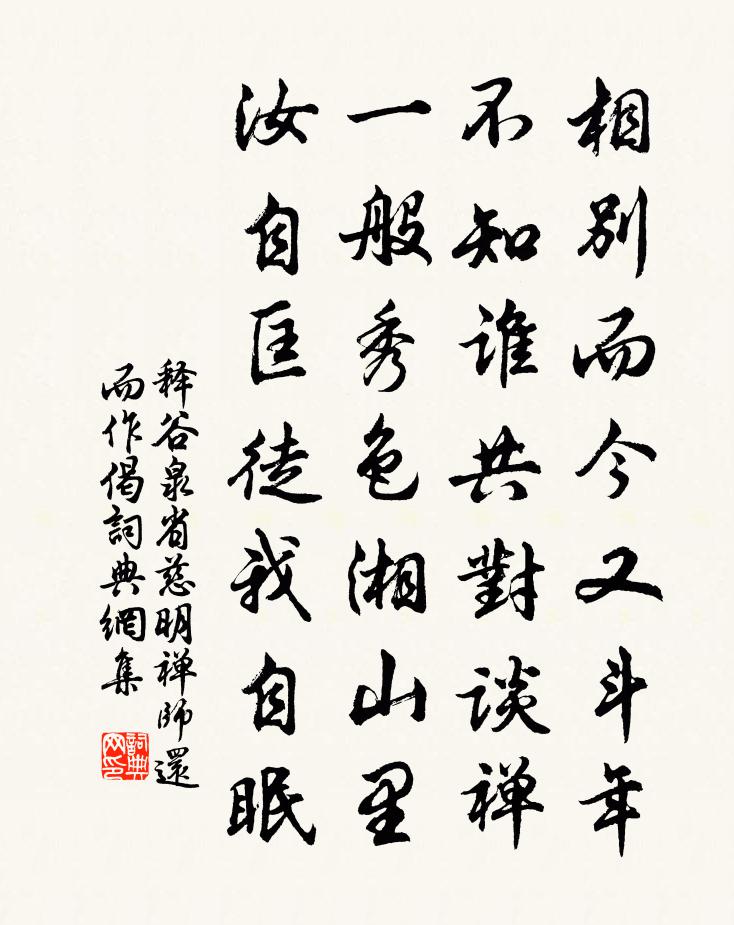 相別而今又斗年
不知誰共對談禅
一般秀色湘山里
汝自匡徒我自眠
释谷泉省慈明禅師還
而作偈詞典網集
詞典
网印